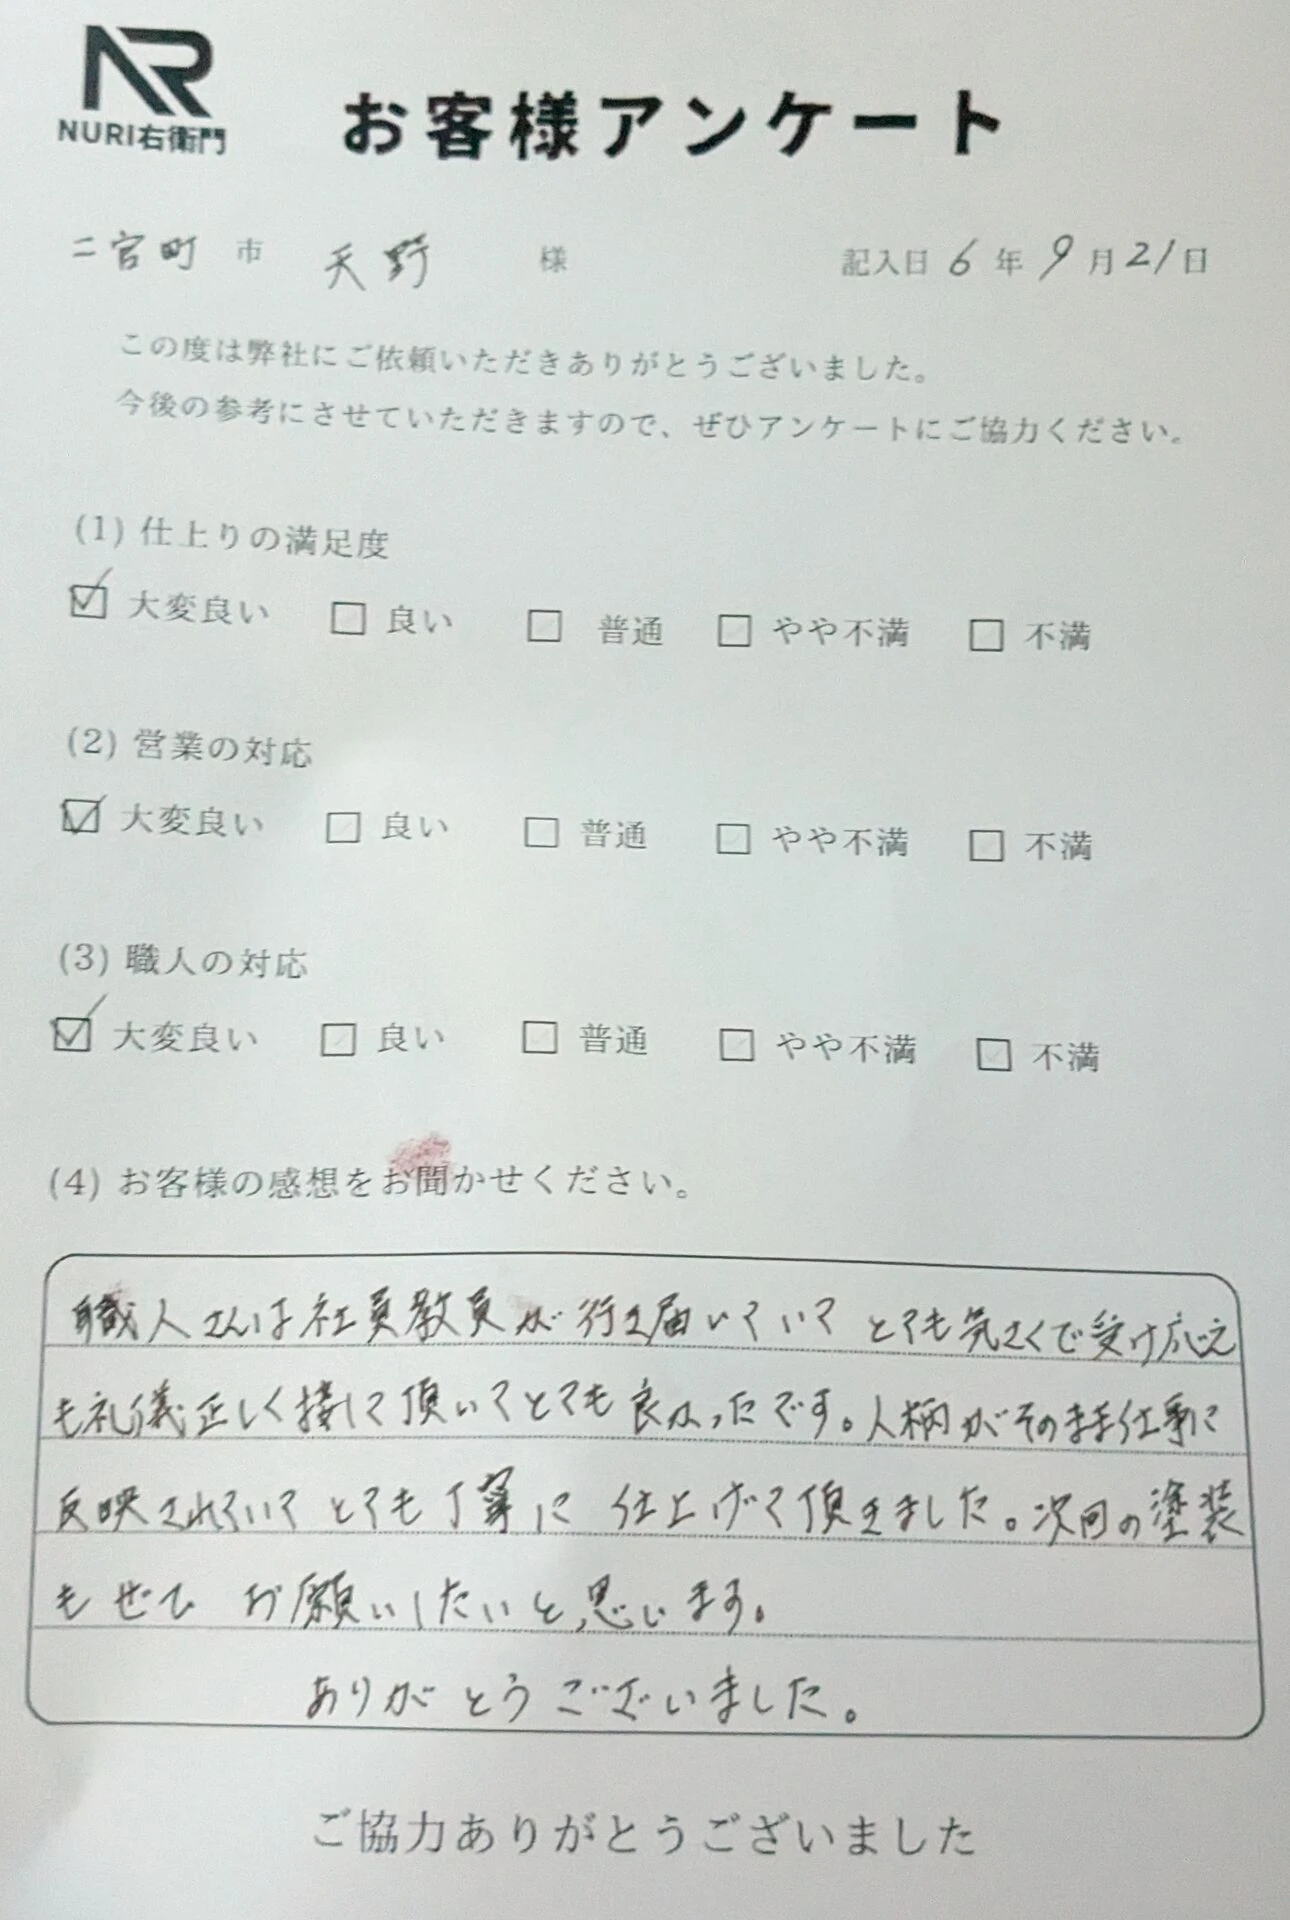 NR
NURI右衛門
お客様アンケート
二宮町 市 天野 様 記入日 6 年 9 月 21 日
この度は弊社にご依頼いただきありがとうございました。
今後の参考にさせていただきますので、ぜひアンケートにご協力ください。
(1) 仕上りの満足度
☑ 大変良い □ 良い □ 普通 □ やや不満 □ 不満
(2) 営業の対応
☑ 大変良い □ 良い □ 普通 □ やや不満 □ 不満
(3) 職人の対応
☑ 大変良い □ 良い □ 普通 □ やや不満 □ 不満
(4) お客様の感想をお聞かせください。
職人さんは社員教員が行き届いていて とても気さくで受け応え
も礼儀正しく接して頂いてとても良かったです。人柄がそのまま仕事に
反映されていて とても丁寧に 仕上げて頂きました。次回の塗装
もぜひ お願いしたいと思います。
ありがとうございました。
ご協力ありがとうございました